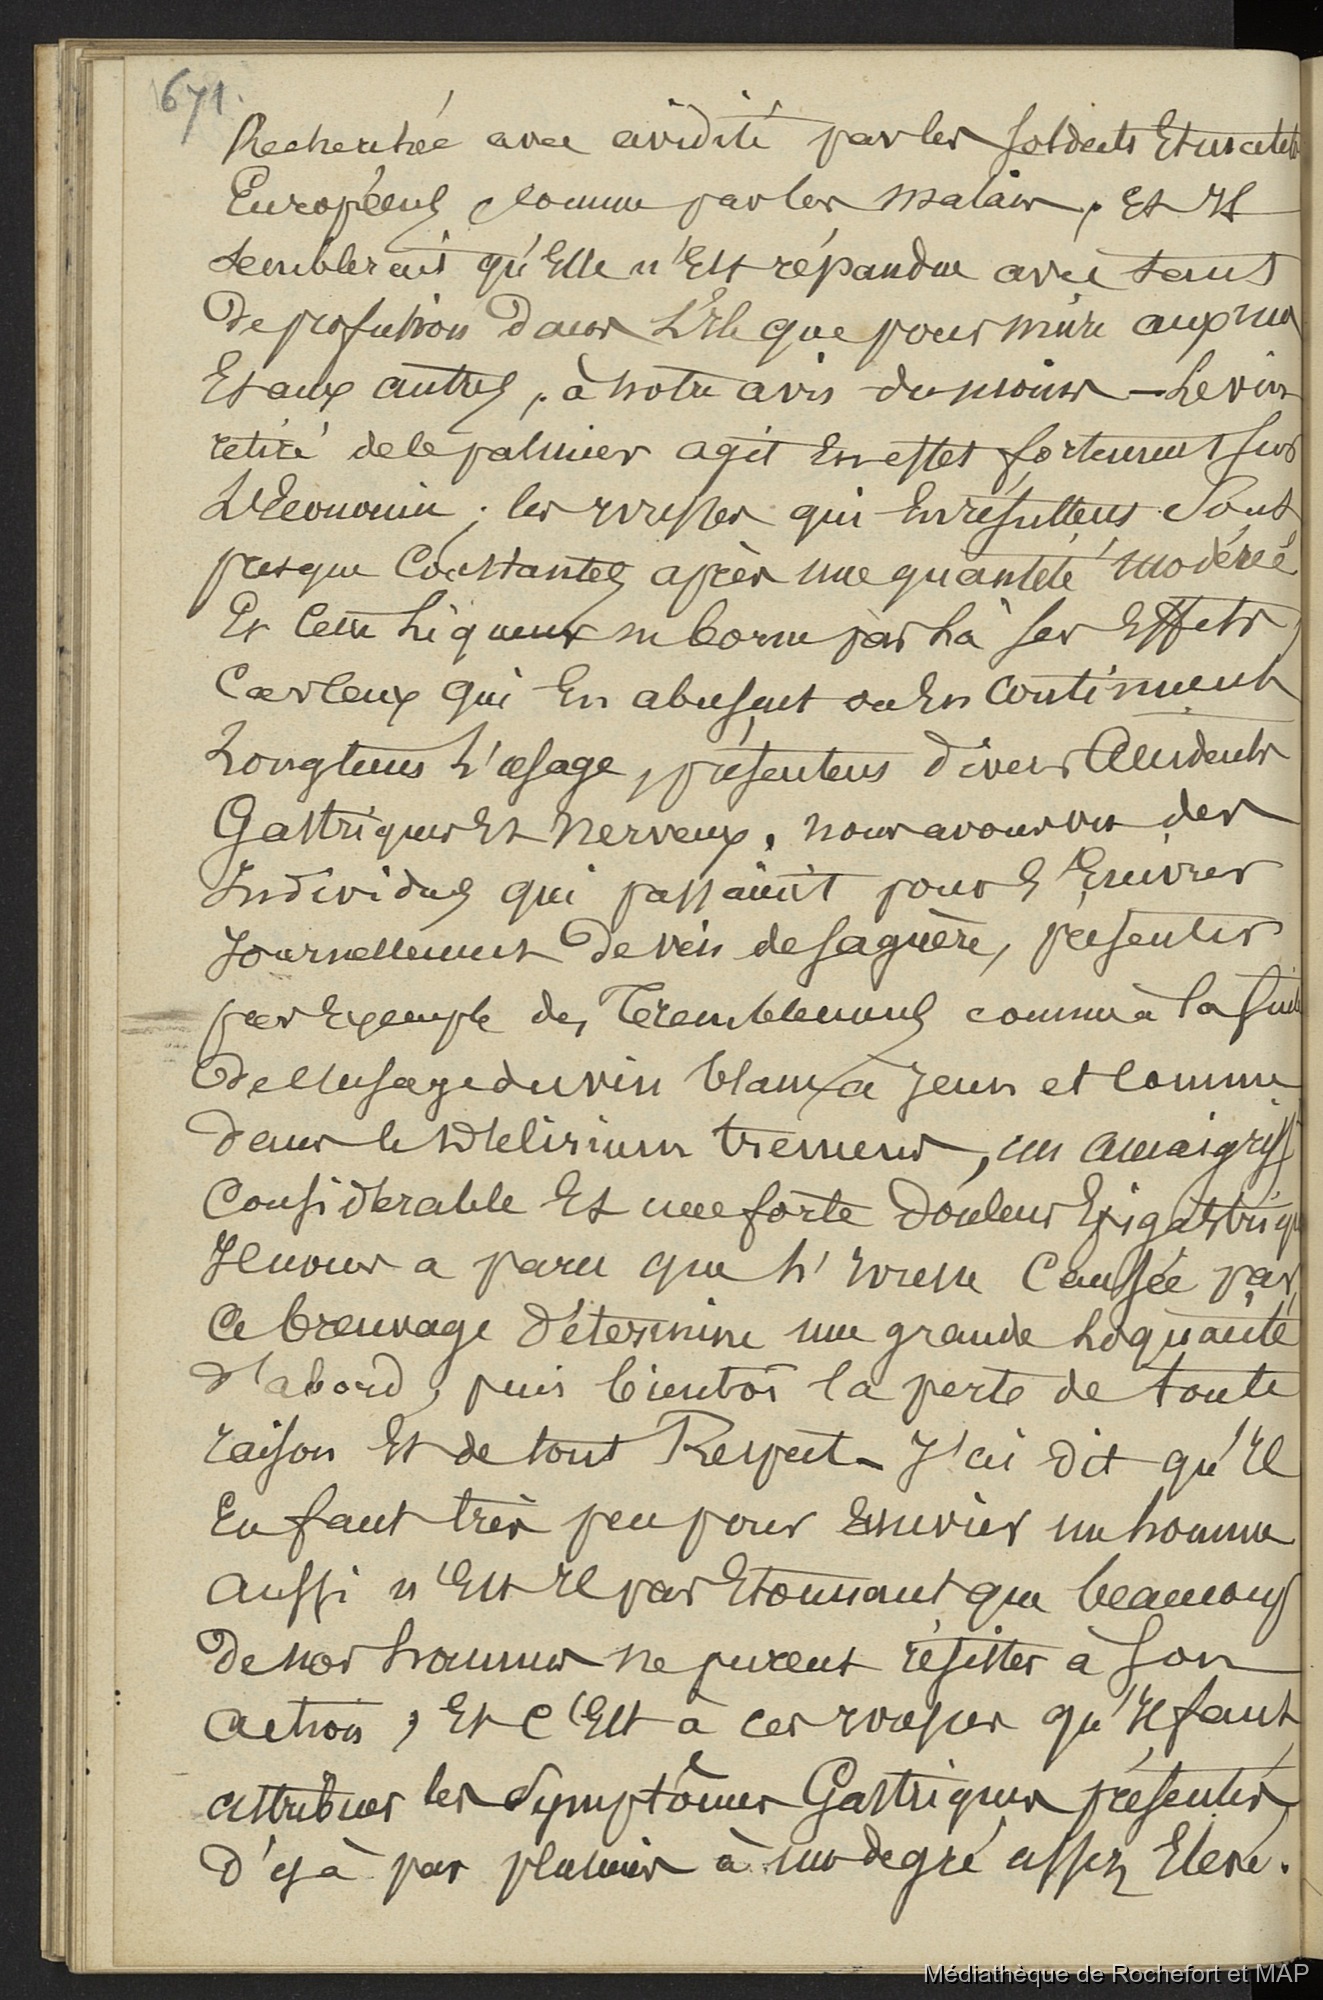 671.
Recherchée avec avidité par les soldats Et matel
Européens, comme par les malais, Et Il
semblerait qu'Elle n'Est répandue avec tant
De profusion Dans L'Ile que pour nuire aux uns
Et aux autres, à notre avis du moins — Le vin
retiré de le palmier agit En effet fortement sur
L'Economie ; les ivresses qui En résultent Sont
presque Constantes après une quantité modérée
Et Cette Liqueur ne borne pas Là ses Effets,
Car Ceux qui En abusent ou En Continuent
Longtems L'usage, présentent divers Accidents
Gastriques Et Nerveux, nous avons vu des
Individus qui passaient pour s'Enivrer
Journellement De vin de saguère, présenter
par Exemple des Tremblements comme à la suite
De l'usage du vin blanc à jeun et Comme
dans le Delirium tremens, un amaigriss
Considérable Et une forte Douleur Epigastriqu
Il nous a paru que L'Ivresse Causée par
Ce breuvage Détermine une grande Loquacité
D'abord, puis bientôt la perte de toute
raison Et de tout Respect — J'ai Dit qu'Il
En faut très peu pour Enivrer un homme
aussi n'Est Il pas Etonnant que beaucoup
De nos hommes ne purent résister à Son
action, Et C'Est à ces ivresses qu'Il faut
attribuer les Symptômes Gastriques présentés
D'éjà par plusieurs à un degré assez Elevé.
Médiathèque de Rochefort et MAP